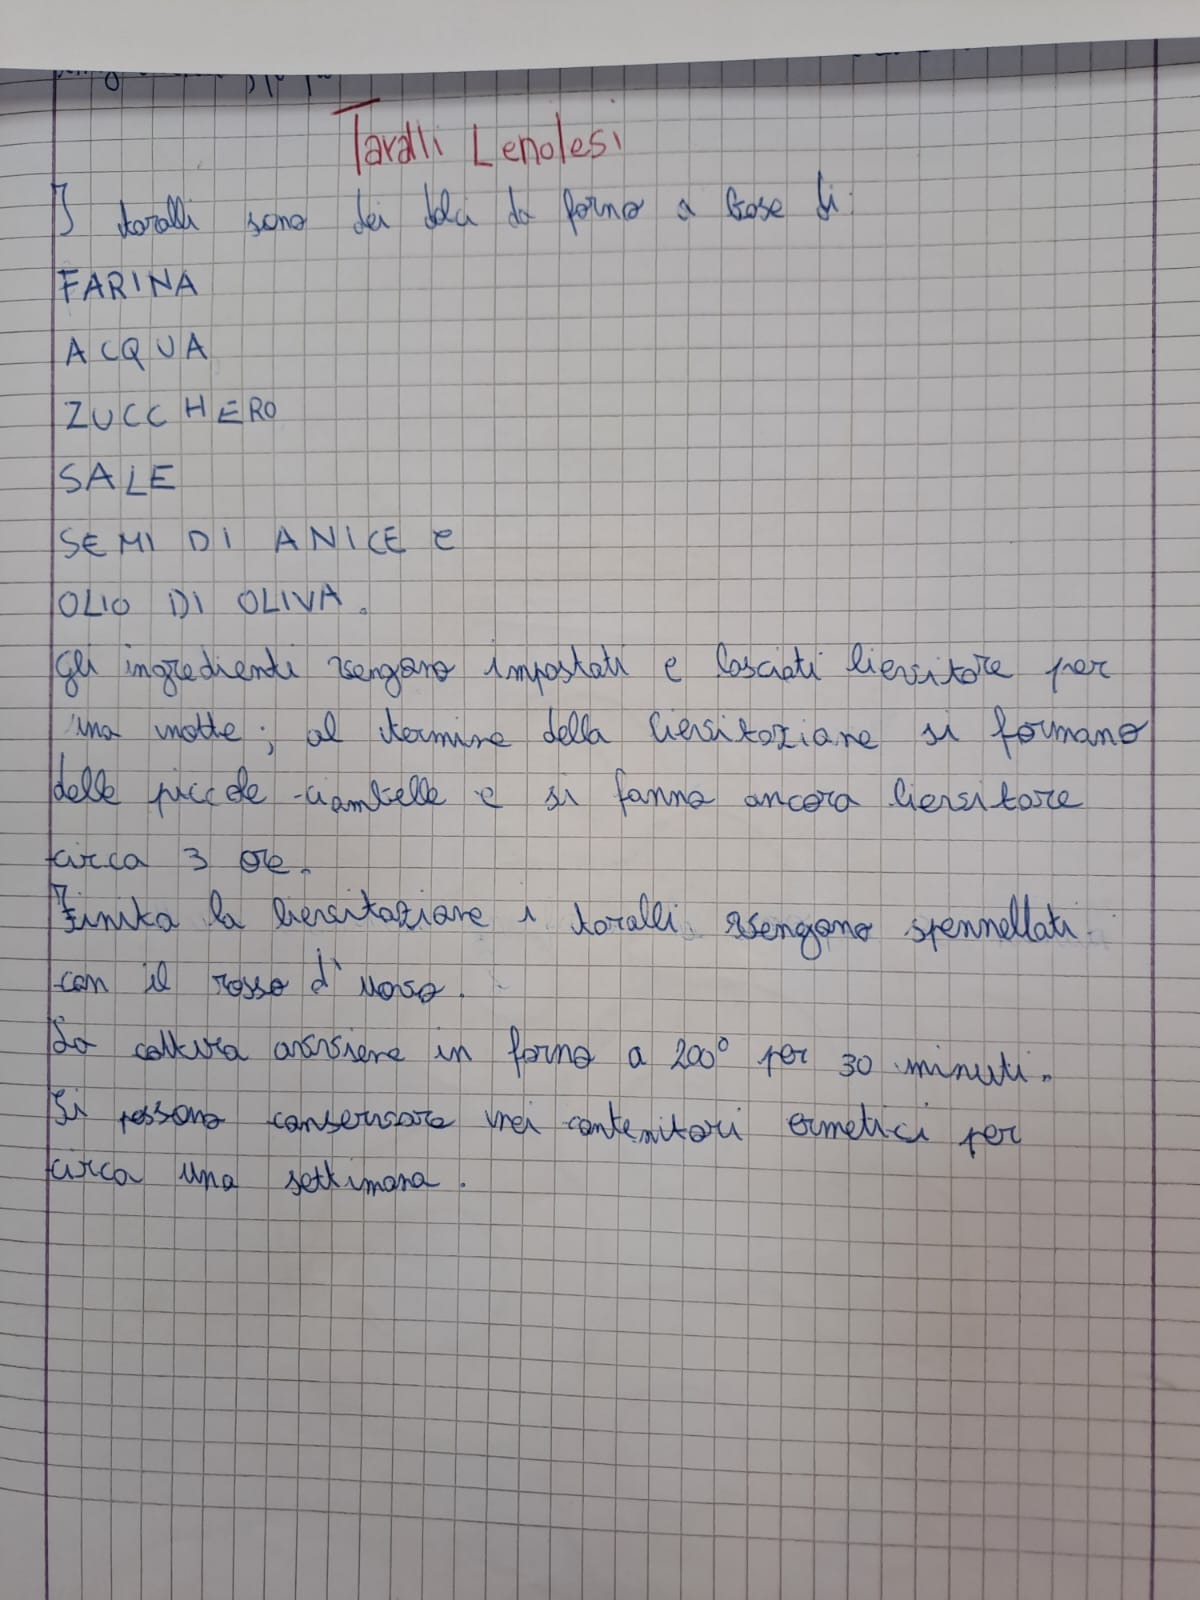 Taralli Lenolesi
I taralli sono dei dolci da forno a base di:
FARINA
ACQUA
ZUCCHERO
SALE
SEMI DI ANICE e
OLIO DI OLIVA.
Gli ingredienti vengono impostati e lasciati lievitare per
una notte; al termine della lievitazione si formano
delle piccole ciambelle e si fanno ancora lievitare
circa 3 ore.
Finita la lievitazione i taralli vengono spennellati
con il rosso d'uovo.
La cottura avviene in forno a 200° per 30 minuti.
Si possono conservare nei contenitori ermetici per
circa una settimana.